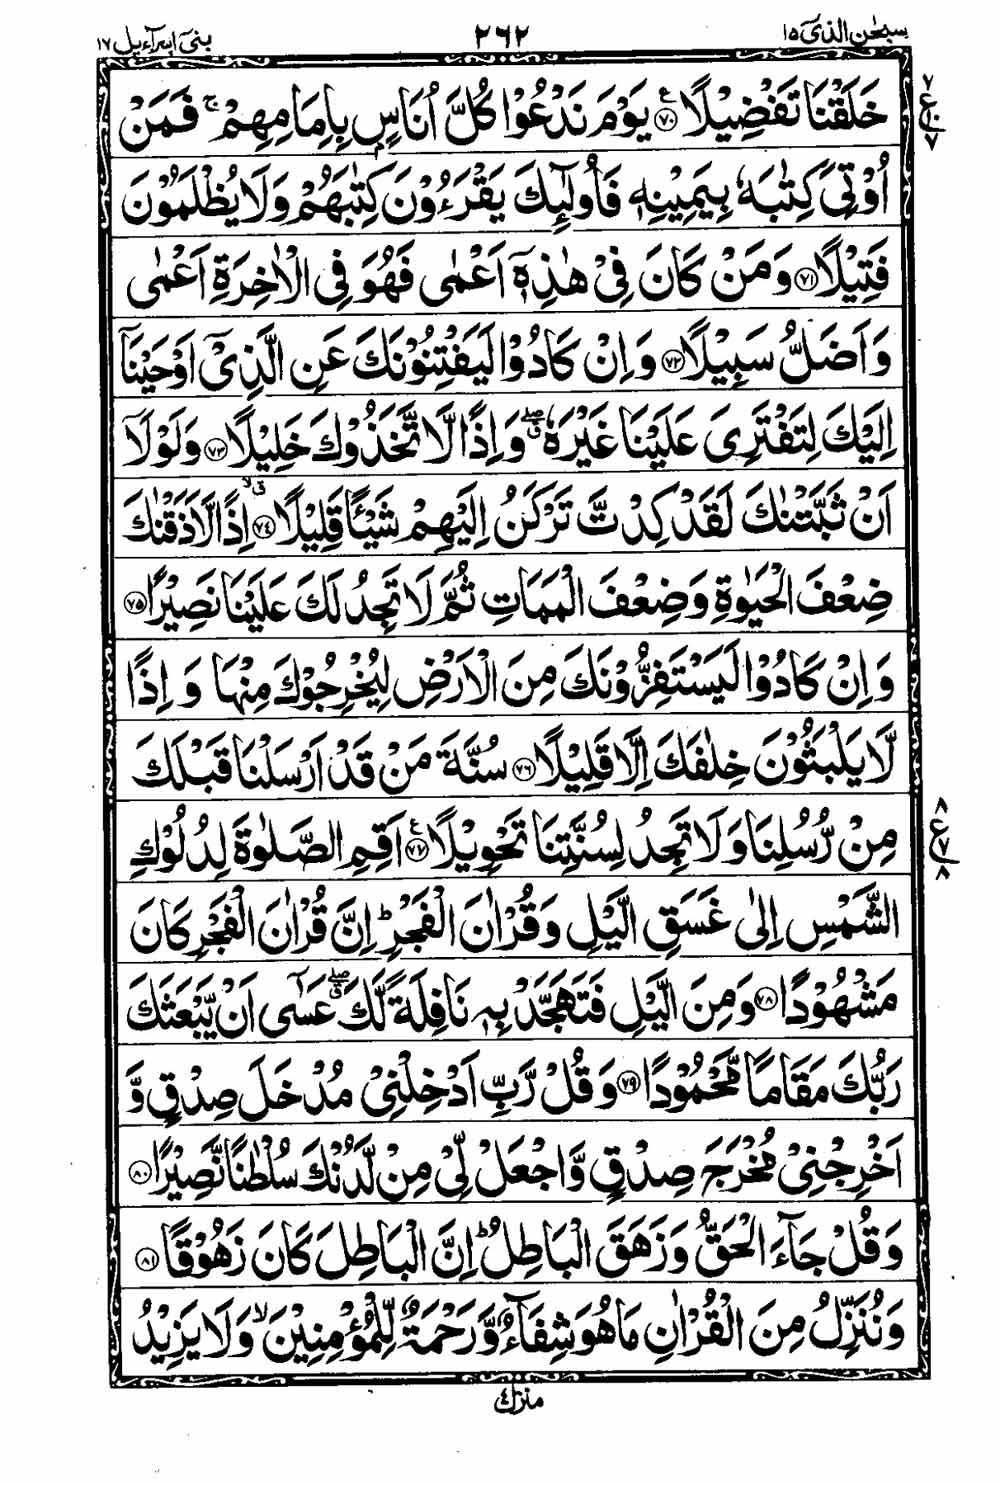 سبحٰن الذیٓ ١٥ ٢٦٢ بنیٓ اسرآءیل ١٧
خَلَقْنَا تَفْضِيْلًا ۧ‏﴿٧٠﴾ يَوْمَ نَدْعُوْا كُلَّ اُنَاسٍۭ بِاِمَامِهِمْ ۚ فَمَنْ
اُوْتِيَ كِتٰبَهٗ بِيَمِيْنِهٖ فَاُولٰٓئِكَ يَقْرَءُوْنَ كِتٰبَهُمْ وَلَا يُظْلَمُوْنَ
فَتِيْلًا ﴿٧١﴾ وَمَنْ كَانَ فِيْ هٰذِهٖٓ اَعْمٰى فَهُوَ فِي الْاٰخِرَةِ اَعْمٰى
وَاَضَلُّ سَبِيْلًا ﴿٧٢﴾ وَاِنْ كَادُوْا لَيَفْتِنُوْنَكَ عَنِ الَّذِيْٓ اَوْحَيْنَآ
اِلَيْكَ لِتَفْتَرِيَ عَلَيْنَا غَيْرَهٗ ۖق وَاِذًا لَّاتَّخَذُوْكَ خَلِيْلًا ﴿٧٣﴾ وَلَوْلَآ
اَنْ ثَبَّتْنٰكَ لَقَدْ كِدْتَّ تَرْكَنُ اِلَيْهِمْ شَيْـًٔا قَلِيْلًا ۙق ﴿٧٤﴾ اِذًا لَّاَذَقْنٰكَ
ضِعْفَ الْحَيٰوةِ وَضِعْفَ الْمَمَاتِ ثُمَّ لَا تَجِدُ لَكَ عَلَيْنَا نَصِيْرًا ﴿٧٥﴾
وَاِنْ كَادُوْا لَيَسْتَفِزُّوْنَكَ مِنَ الْاَرْضِ لِيُخْرِجُوْكَ مِنْهَا وَاِذًا
لَّا يَلْبَثُوْنَ خِلٰفَكَ اِلَّا قَلِيْلًا ﴿٧٦﴾ سُنَّةَ مَنْ قَدْ اَرْسَلْنَا قَبْلَكَ
مِنْ رُّسُلِنَا وَلَا تَجِدُ لِسُنَّتِنَا تَحْوِيْلًا ۧ ﴿٧٧﴾ اَقِمِ الصَّلٰوةَ لِدُلُوْكِ
الشَّمْسِ اِلٰى غَسَقِ الَّيْلِ وَقُرْاٰنَ الْفَجْرِ ؕ اِنَّ قُرْاٰنَ الْفَجْرِ كَانَ
مَشْهُوْدًا ﴿٧٨﴾ وَمِنَ الَّيْلِ فَتَهَجَّدْ بِهٖ نَافِلَةً لَّكَ ۖق عَسٰٓى اَنْ يَّبْعَثَكَ
رَبُّكَ مَقَامًا مَّحْمُوْدًا ﴿٧٩﴾ وَقُلْ رَّبِّ اَدْخِلْنِيْ مُدْخَلَ صِدْقٍ وَّ
اَخْرِجْنِيْ مُخْرَجَ صِدْقٍ وَّاجْعَلْ لِّيْ مِنْ لَّدُنْكَ سُلْطٰنًا نَّصِيْرًا ﴿٨٠﴾
وَقُلْ جَآءَ الْحَقُّ وَزَهَقَ الْبَاطِلُ ؕ اِنَّ الْبَاطِلَ كَانَ زَهُوْقًا ﴿٨١﴾
وَنُنَزِّلُ مِنَ الْقُرْاٰنِ مَا هُوَ شِفَآءٌ وَّرَحْمَةٌ لِّلْمُؤْمِنِيْنَ ۙ وَلَا يَزِيْدُ
منزل ٤
٧ ع ٧
٨ ع ٧ ٨